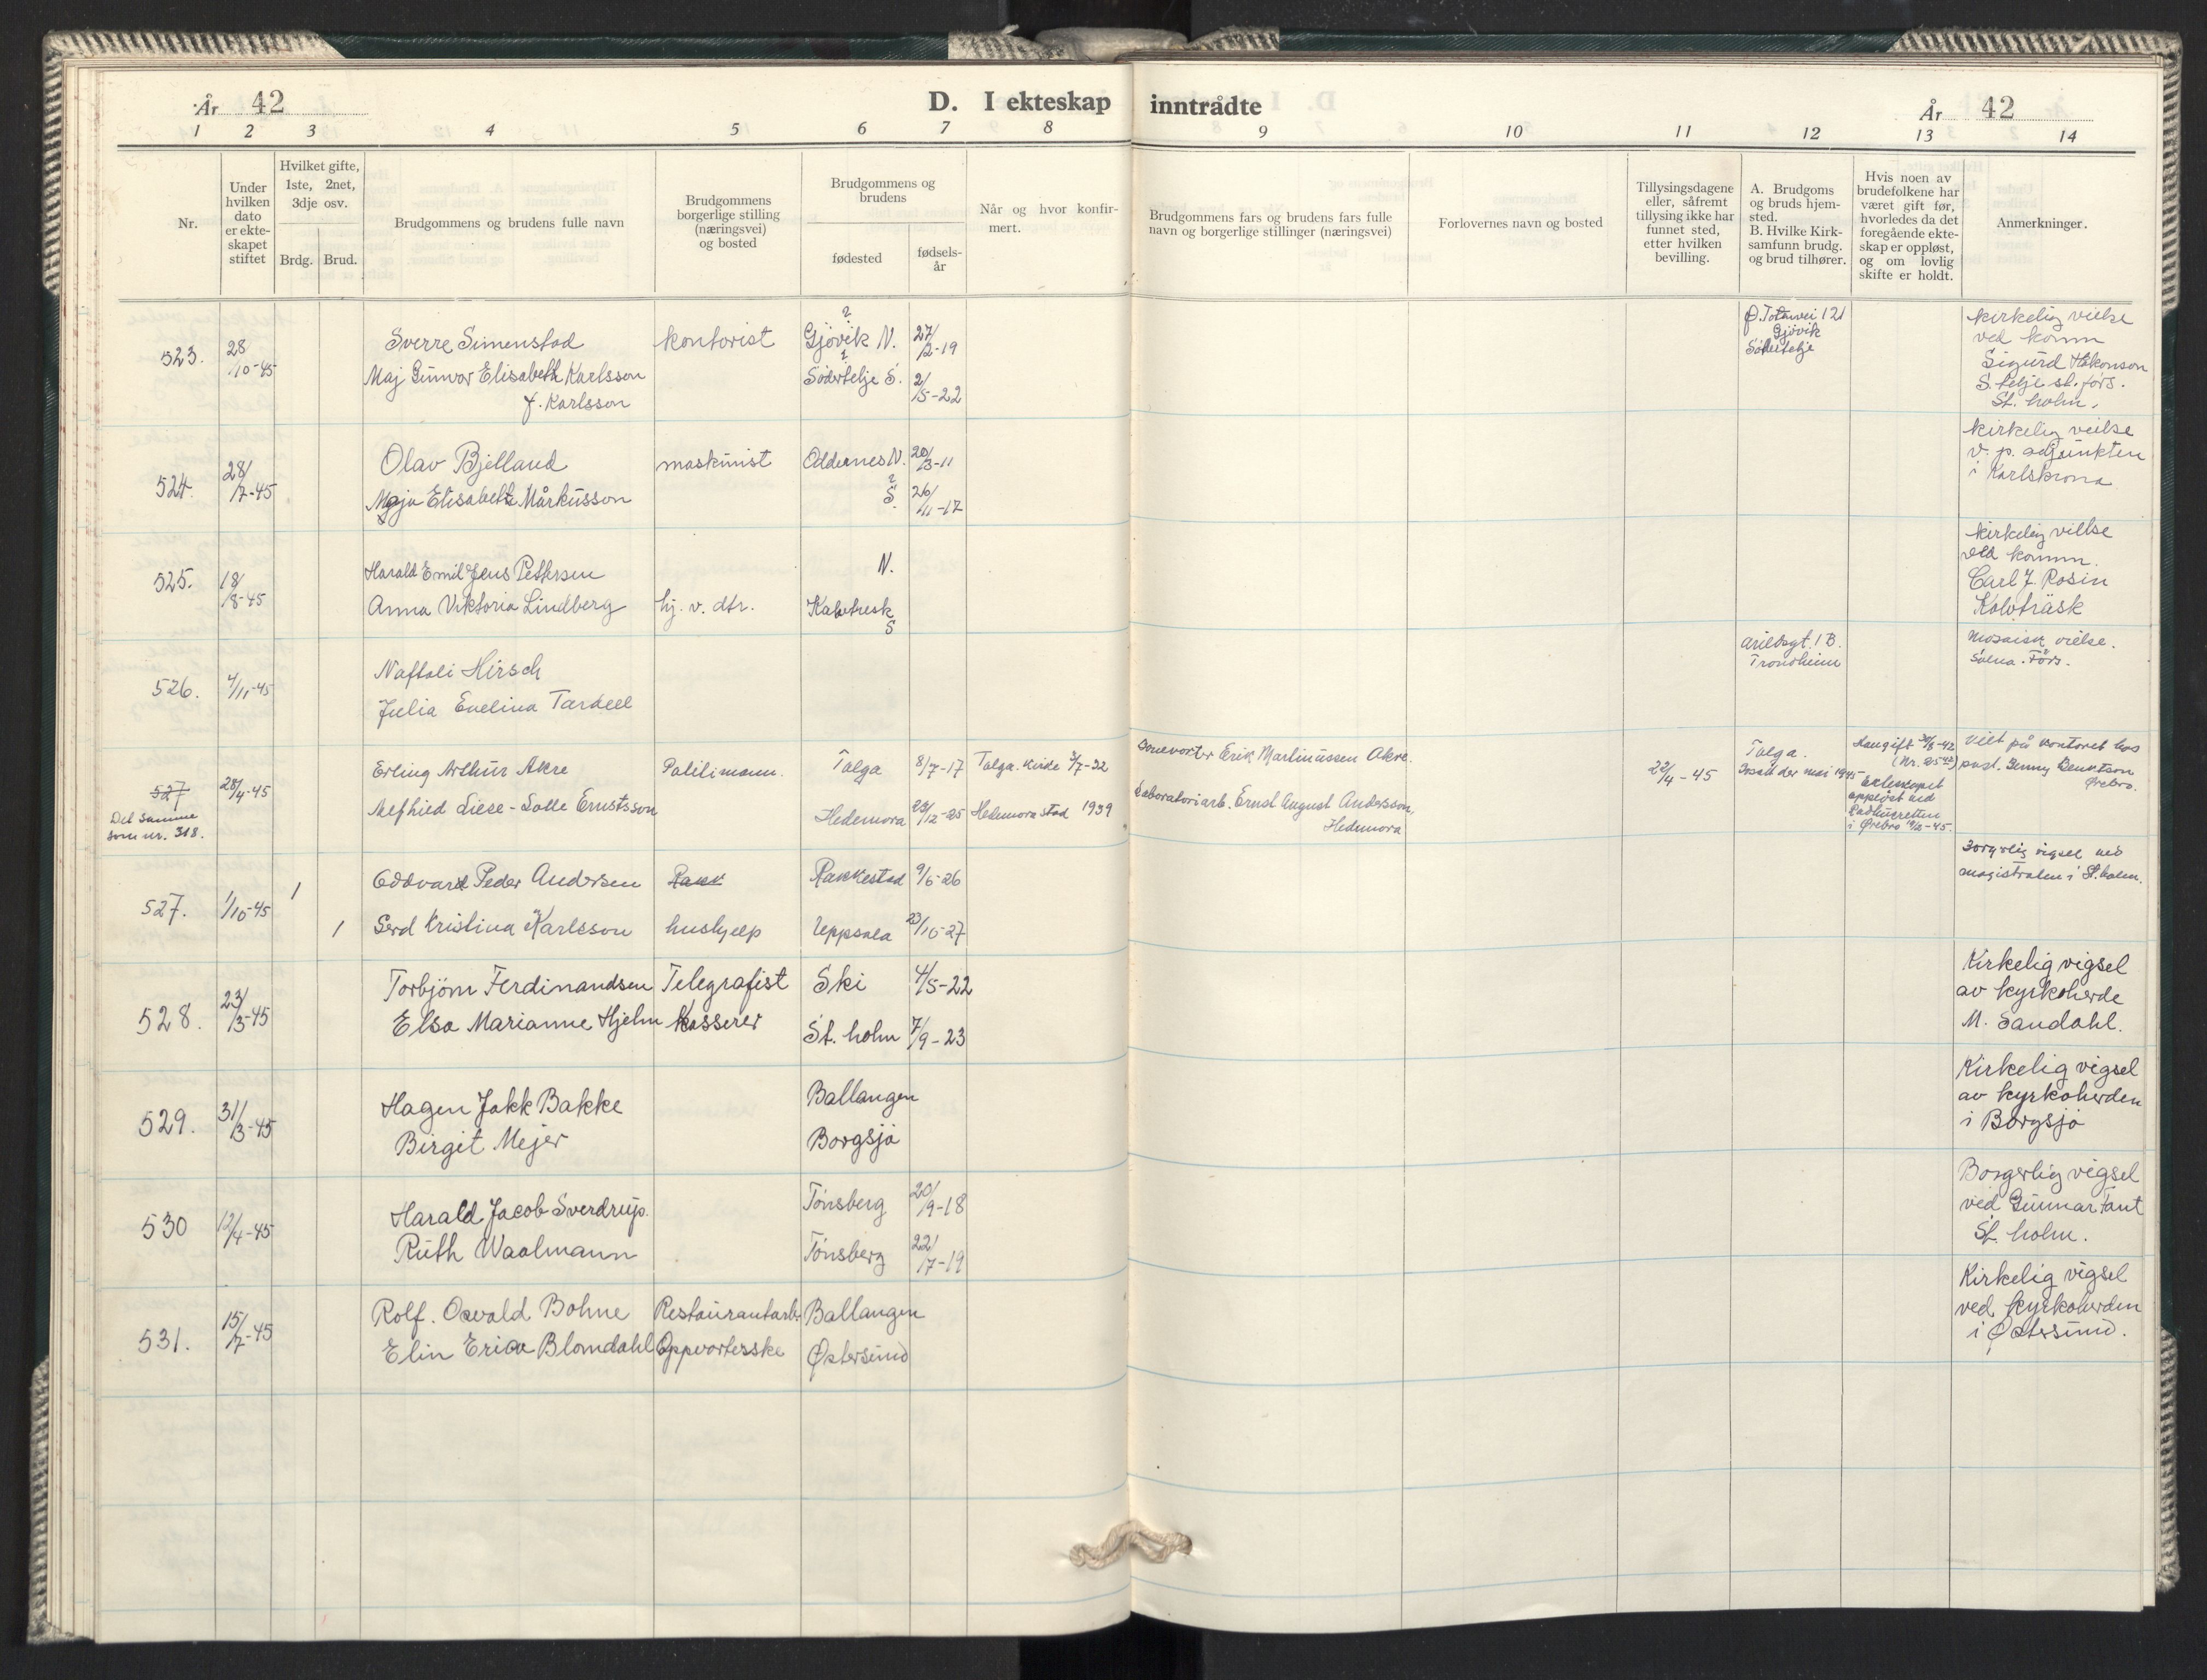 År 42
D. I ekteskap inntrådte
År 42
1 2 3 4 5 6 7 8 9 10 11 12 13 14
Nr.
Under hvilken dato er ekteskapet stiftet
Hvilket gifte, 1ste, 2net, 3dje osv.
Brdg. Brud.
Brudgommens og brudens fulle navn
Brudgommens borgerlige stilling (næringsvei) og bosted
Brudgommens og brudens
fødested
fødsels-år
Når og hvor konfirmert.
Brudgommens fars og brudens fars fulle navn og borgerlige stillinger (næringsvei)
Forlovernes navn og bosted
Tillysingsdagene eller, såfremt tillysing ikke har funnet sted, etter hvilken bevilling.
A. Brudgoms og bruds hjemsted.
B. Hvilke Kirksamfunn brudg. og brud tilhører.
Hvis noen av brudefolkene har været gift før, hvorledes da det foregående ekteskap er oppløst, og om lovlig skifte er holdt.
Anmerkninger.
523. 28/10-45 Sverre Simenstad kontorist ? Gjövik N. 27/2-19
Maj Gunvor Elisabeth Karlsson ? Södertelje S. 2/5-22
f. Karlsson
Ø. Totenvei 121
Gjövik
Södertelje
kirkelig vielse
ved komm
Sigurd Håkonson
S. telje st. förs.
St. holm.
524. 28/7-45 Olav Bjelland maskinist Oddernes N. 20/3-11
Maja Elisabeth Mårkusson ? S. 26/11-17
kirkelig vielse
v. p. adjunkten
i Karlskrona
525. 18/8-45 Harald Emil Jens Pettersen N.
Anna Viktoria Lindberg hj. v. dtr. Kalvtresk S
kirkelig vielse
ved komm.
Carl J. Rosin
Kalvträsk
526. 4/11-45 Naftoli Hirsch
Julia Evelina Tardell
Arildsgt. 1 B.
Trondheim
Mosaisk vielse.
Solna. Förs.
527 28/4-45 Erling Arthur Akre Politimann. Tolga 8/7-17 Tolga. Kirke 3/7-32
Det samme som nr. 318.
Alfhild Liese-Lotte Ernstsson Hedemora 29/12-25 Hedemora stad 1939
Sonevorter Erik Martinussen Akre.
Laboratoriarb. Ernst August Andersson, Hedemora
22/4-45
Tolga.
Bosatt der mai 1945
Han gift 30/5-42
(Nr. 25 42)
Ekteskapet
oppløst ved
Rådhusretten
i Ørebro 19/2-45.
Viet på kontoret hos
past. Benny Bengtson
Ørebro.
527. 1/10-45 1 Oddvard Peder Andersen Rakk Rakkestad 9/6-26
1 Gerd Kristina Karlsson hushjelp Uppsala 23/10-27
Borgerlig vigsel ved
magistraten i St. holm.
528. 23/3-45 Torbjörn Ferdinandsen Telegrafist Ski 4/5-22
Elsa Marianne Hjelm Kasserer St. holm 7/9-23
Kirkelig vigsel
av kyrkoherde
M. Sandahl.
529. 31/3-45 Hagen Jakk Bakke Ballangen
Birgit Mejer Borgsjö
Kirkelig vigsel
av kyrkoherden
i Borgsjö
530 12/4-45 Harald Jacob Sverdrup. Tönsberg 20/9-18
Ruth Waalmann Tönsberg 22/7-19
Borgerlig vigsel
ved Gunnar Fant
St. holm.
531. 15/7-45 Rolf. Osvald Bohne Restaurantarb. Ballangen
Elin Erica Blomdahl Oppvorterske Østersund
Kirkelig vigsel
ved kyrkoherden
i Østersund.